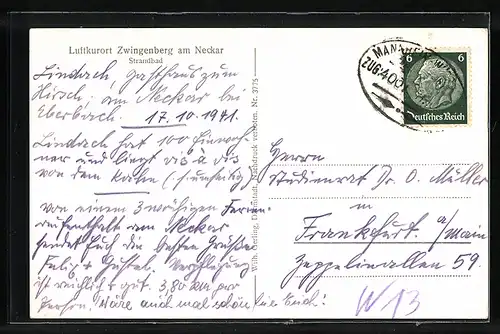 Luftkurort Zwingenberg am Neckar
Strandbad
Lindach, Gasthaus zum
Hirsch, am Neckar bei
Eberbach. 17.10.1941.
Lindach hat 100 Einwoh-
ner und liegt vis à vis
von dem (s. umseitig)
von einem 3 wöchigen Ferien-
aufenthalt am Neckar
sendet Euch die besten Grüße
Felix + Gustel. Verpflegung
ist reichlich + gut. 3,80 M pro
Person. Wäre auch mal schön für Euch!
Wilh. Gerling, Darmstadt, Nachdruck verboten. Nr. 3775
ZUG:400
6 6
Deutsches Reich
Herrn
Studienrat Dr. O. Müller
in
Frankfurt a/Main
Zeppelinallee 59.
W 13